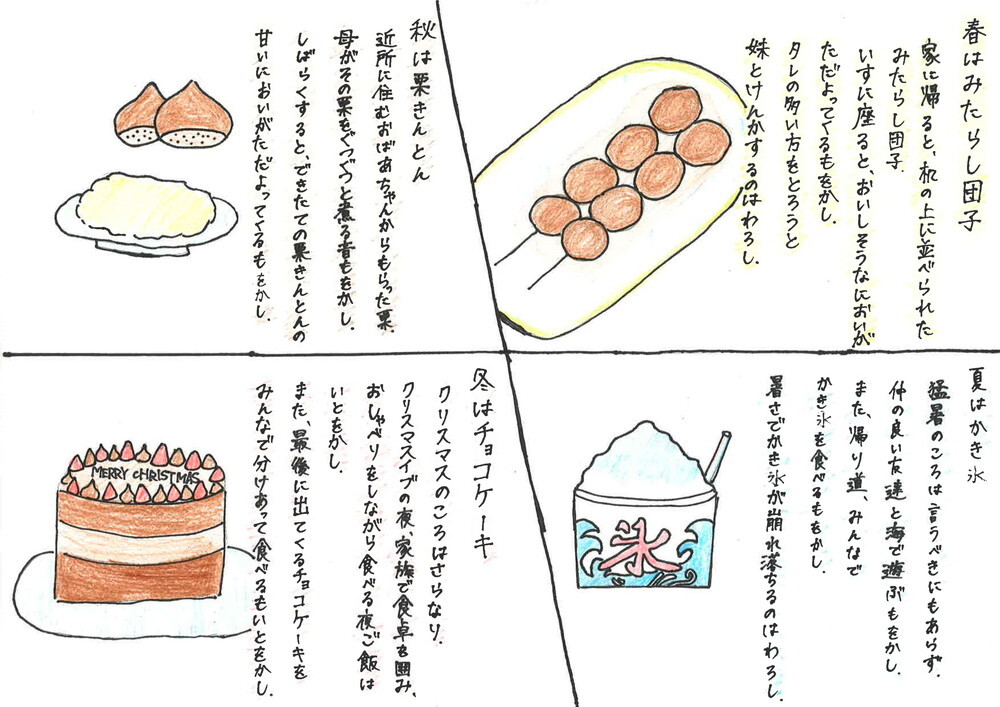 春はみたらし団子
家に帰ると、机の上に並べられた
みたらし団子.
いすに座ると、おいしそうなにおいが
ただよってくるもをかし.
タレの多い方をとろうと
妹とけんかするのはわろし.
夏はかき氷
猛暑のころは言うべきにもあらず.
仲の良い友達と海で遊ぶもをかし.
また、帰り道、みんなで
かき氷を食べるもをかし.
暑さでかき氷が崩れ落ちるのはわろし.
氷
秋は栗きんとん
近所に住むおばあちゃんからもらった栗.
母がその栗をぐつぐつと煮る音もをかし.
しばらくすると、できたての栗きんとんの
甘いにおいがただよってくるもをかし.
冬はチョコケーキ
クリスマスのころはさらなり.
クリスマスイブの夜、家族で食卓を囲み、
おしゃべりをしながら食べる夜ご飯は
いとをかし.
また、最後に出てくるチョコケーキを
みんなで分けあって食べるもいとをかし.
MERRY CHRISTMAS